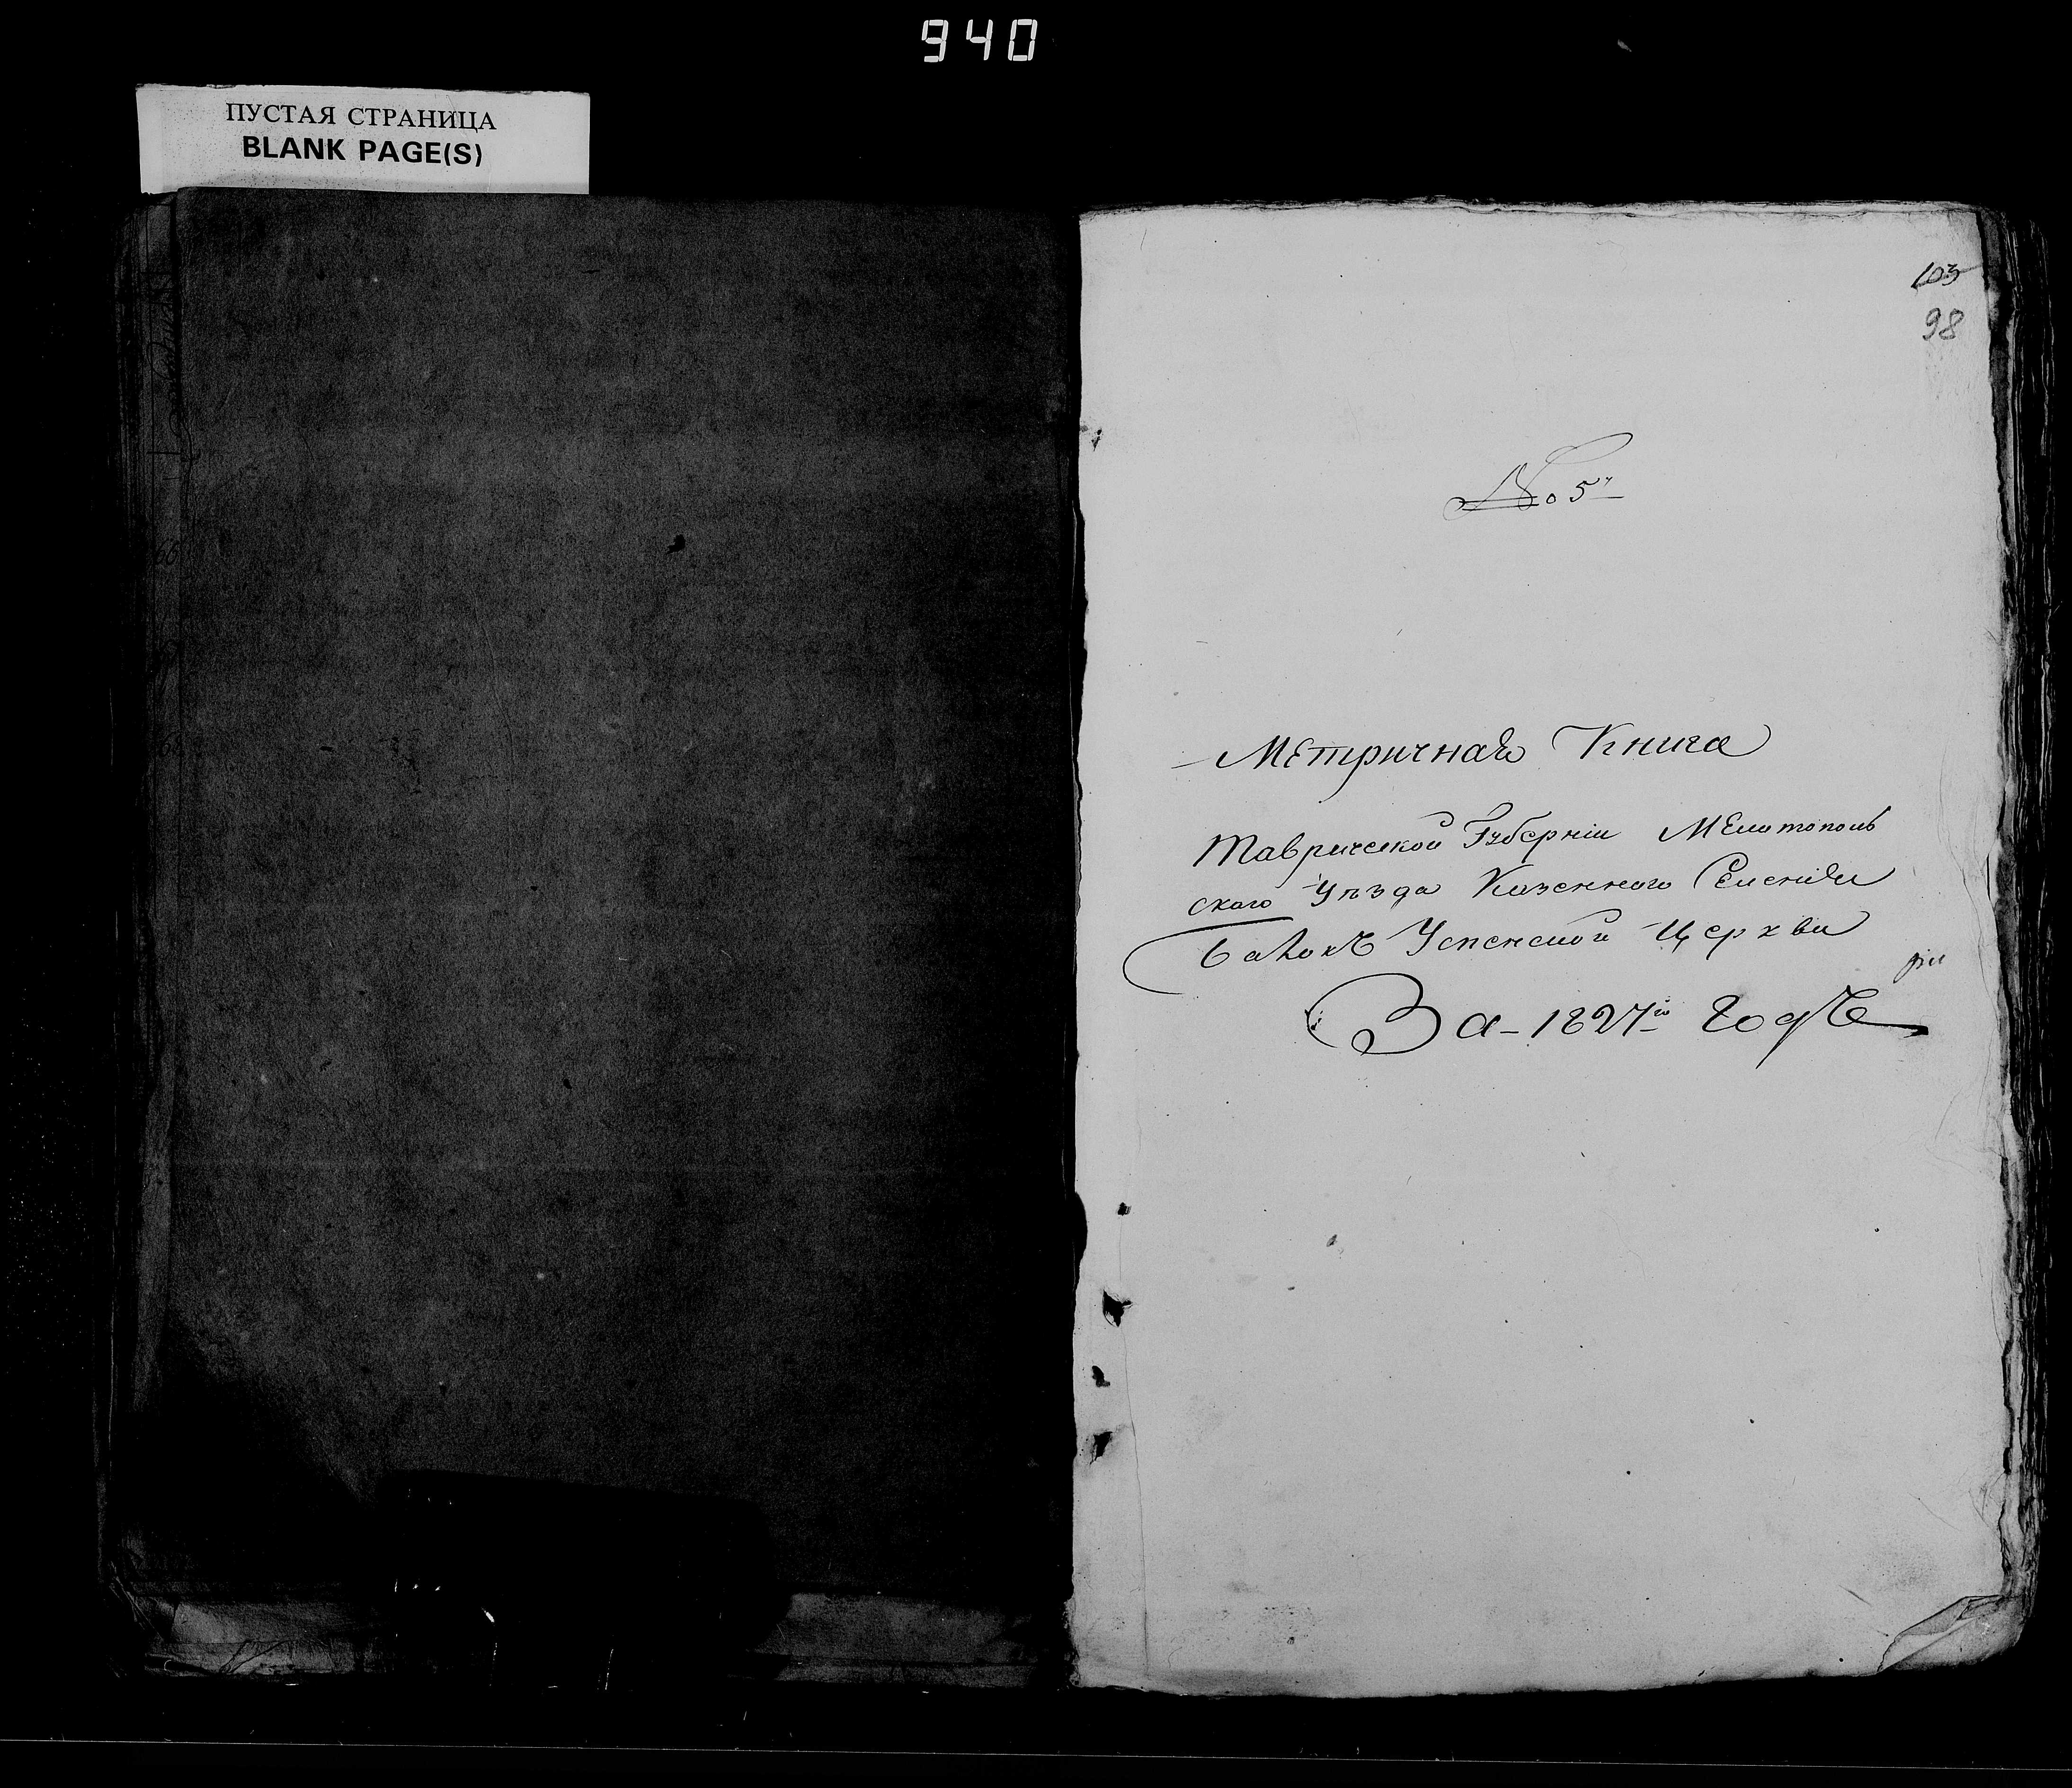 940
ПУСТАЯ СТРАНИЦА
BLANK PAGE(S)
103
98
№ 5й
Метричная Книга
Таврической Губерніи Мелитополь
ского Уѣзда Казенного Селенія
Балокъ Успенской Церкви
За 1827й годъ